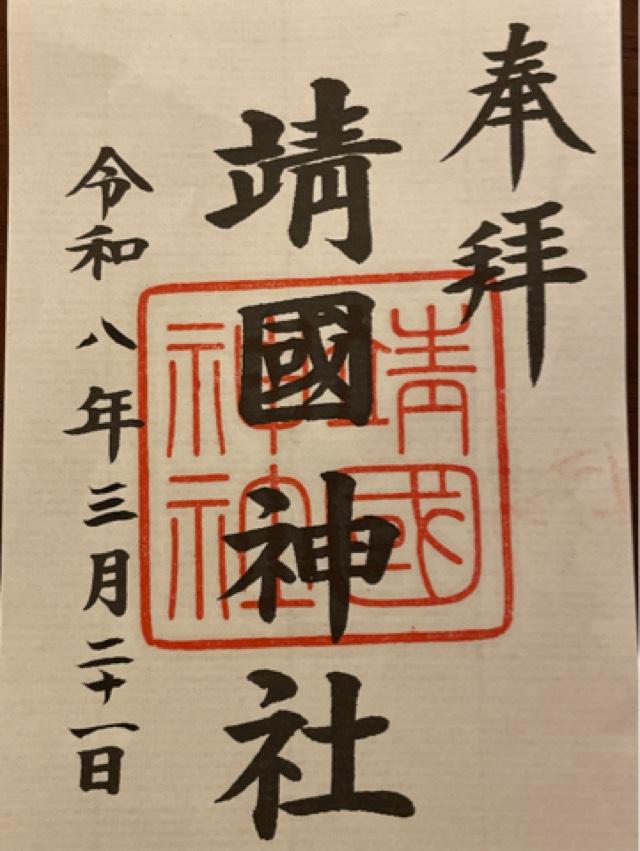 奉拝
靖國神社
靖國
神社
令和八年三月二十一日